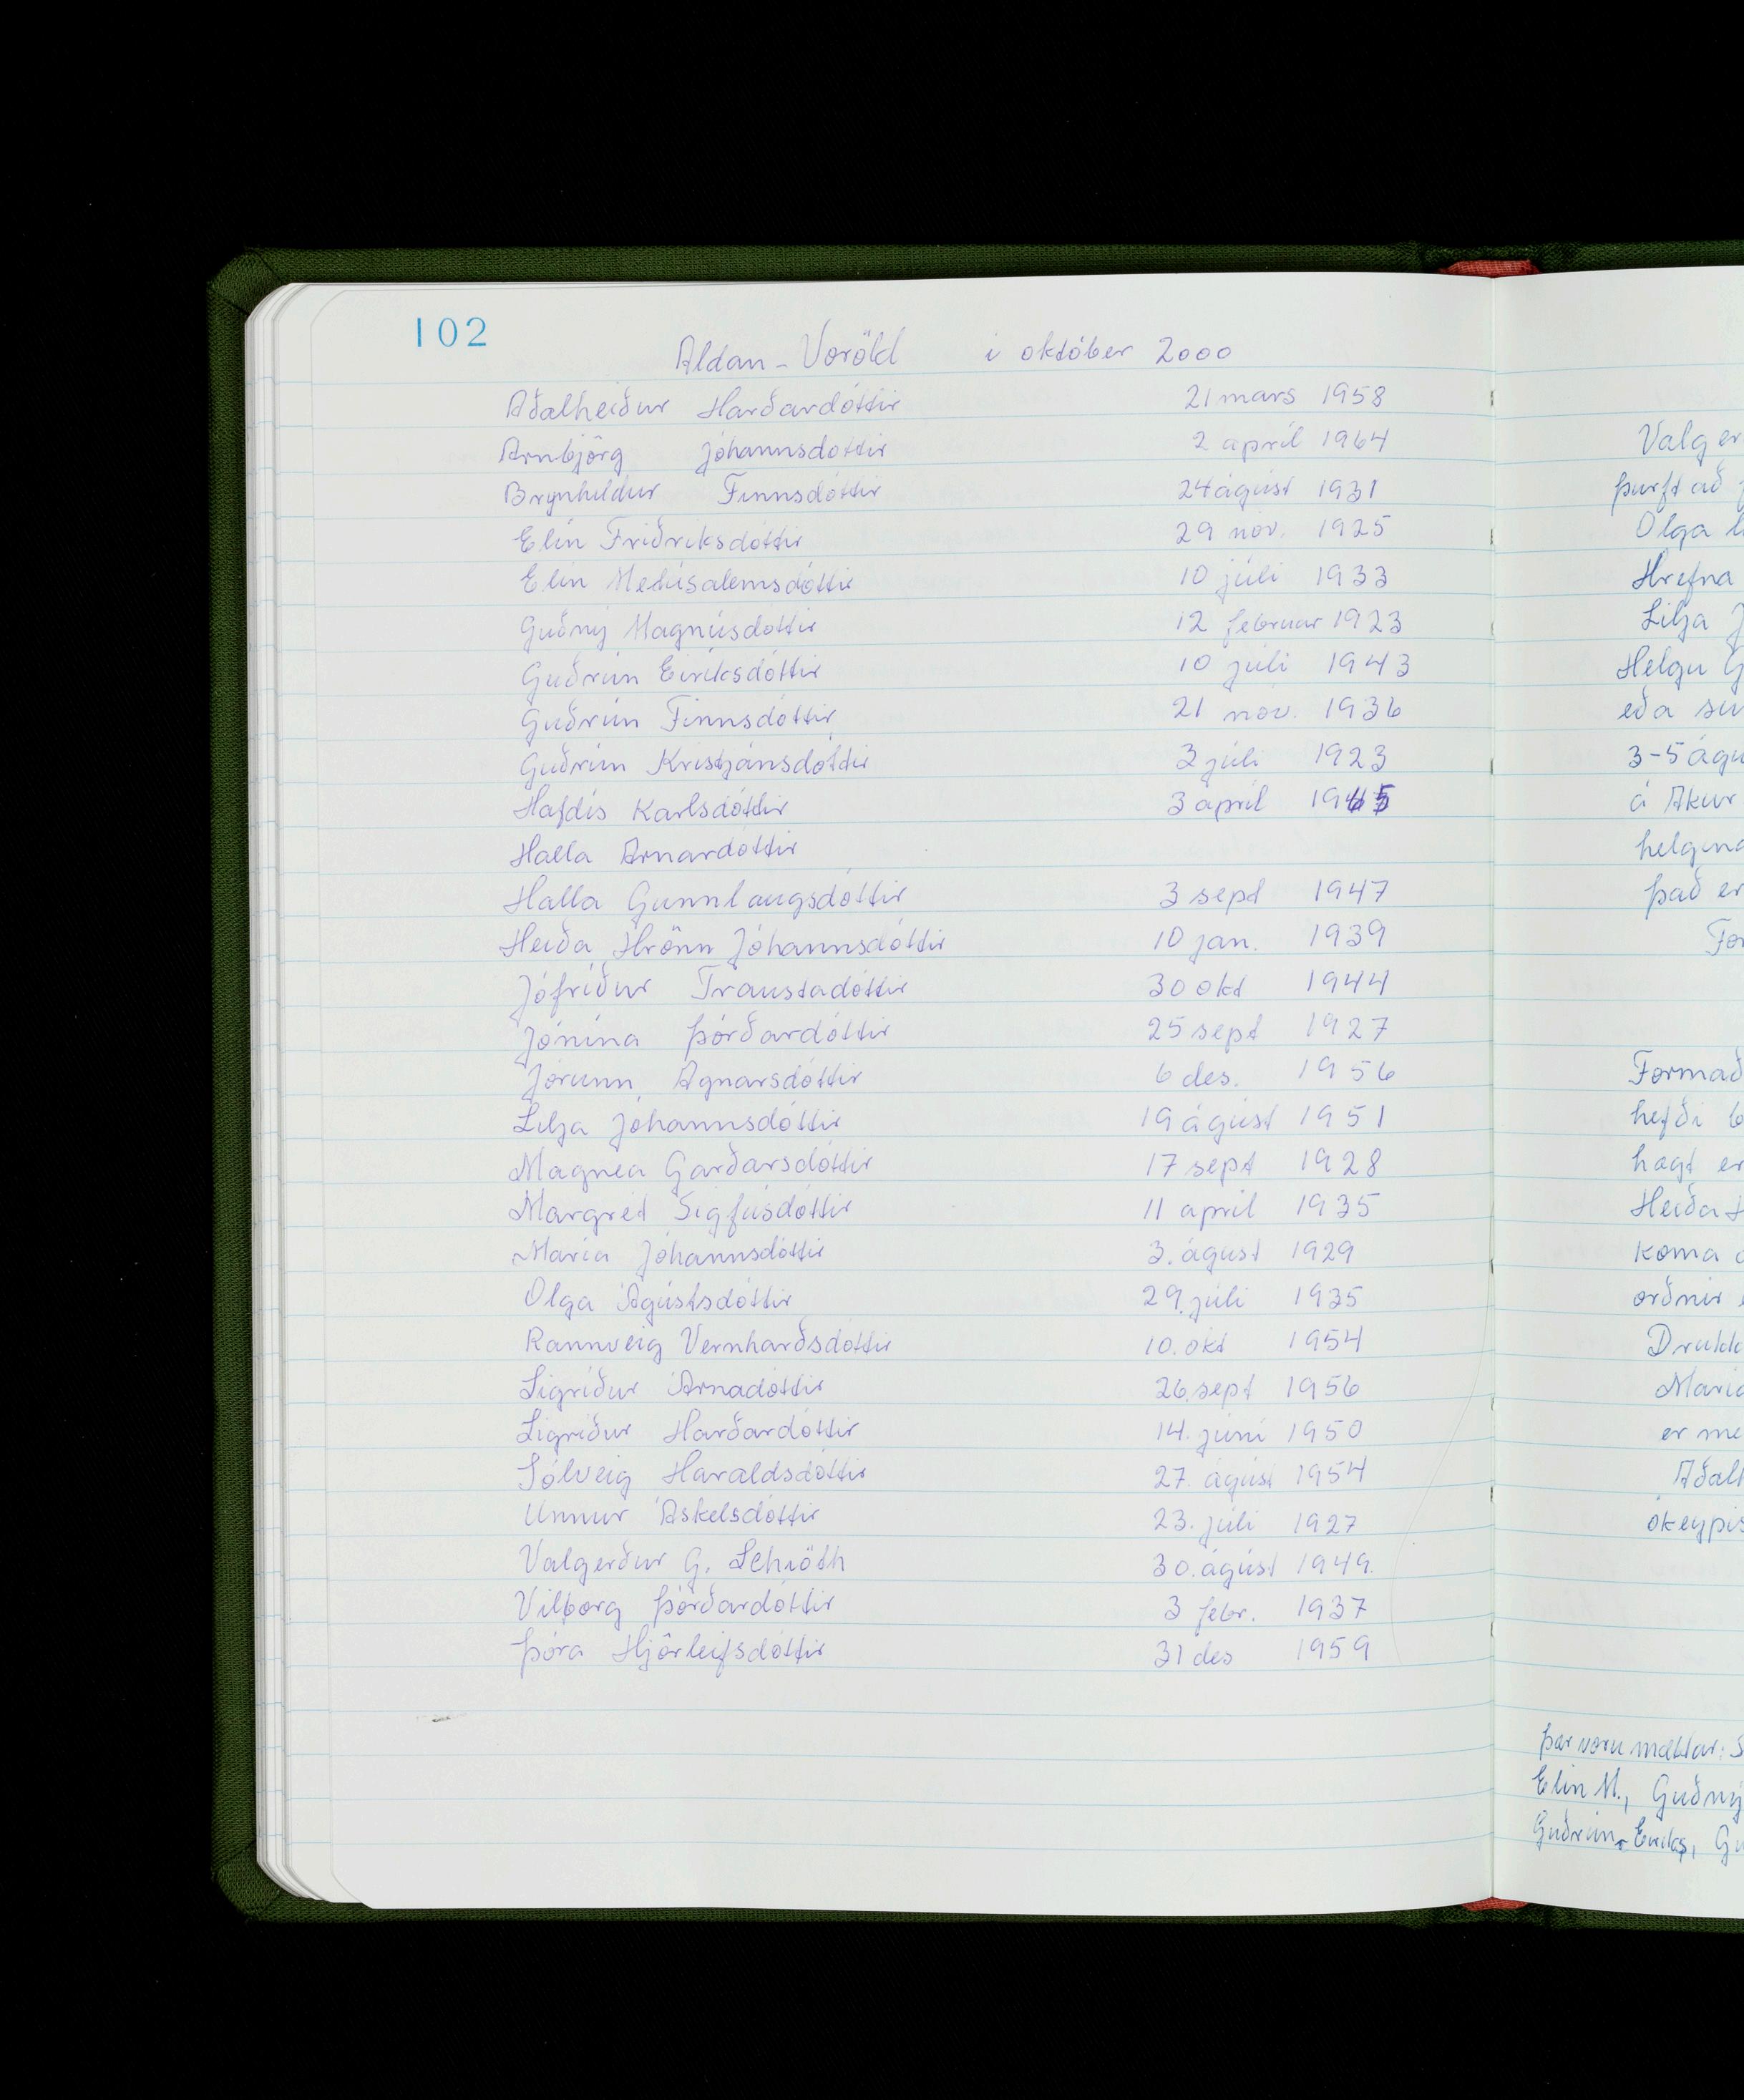 102
Aldan - Voröld í október 2000
Aðalheiður Harðardóttir 21 mars 1958
Arnbjörg Jóhannsdóttir 2 apríl 1964
Brynhildur Finnsdóttir 24 ágúst 1931
Elín Friðriksdóttir 29 nóv. 1925
Elín Metúsalemsdóttir 10 júlí 1933
Guðný Magnúsdóttir 12 februar 1923
Guðrún Eiríksdóttir 10 júlí 1943
Guðrún Finnsdóttir 21 nóv. 1936
Guðrún Kristjánsdóttir 3 júlí 1923
Hafdís Karlsdóttir 3 apríl 1945
Halla Arnardóttir
Halla Gunnlaugsdóttir 3 sept 1947
Heiða Hrönn Jóhannsdóttir 10 jan. 1939
Jófríður Traustadóttir 30 okt 1944
Jónína Þórðardóttir 25 sept 1927
Jórunn Agnarsdóttir 6 des. 1956
Lilja Jóhannsdóttir 19 ágúst 1951
Magnea Garðarsdóttir 17 sept 1928
Margrét Sigfúsdóttir 11 apríl 1935
María Jóhannsdóttir 3. ágúst 1929
Olga Ágústsdóttir 29. júlí 1935
Rannveig Vernharðsdóttir 10. okt 1954
Sigríður Árnadóttir 26. sept 1956
Sigríður Harðardóttir 14. júní 1950
Sólveig Haraldsdóttir 27. ágúst 1954
Unnur Áskelsdóttir 23. júlí 1927
Valgerður G. Schiöth 30. ágúst 1949.
Vilborg Þórðardóttir 3 febr. 1937
Þóra Hjörleifsdóttir 31 des 1959
Valger
þurft að
Olga
Hrefna
Lilja J
Helgu G
eða
3-5 ágú
á Akur
helgina
það er
For
Formað
hefði
hagt er
Heiða H
koma
orðnir
Drukk
María
er me
Aðalh
ókeypis
Þar voru mættar: S
Elín M., Guðný
Guðrún Eiríks, Gu